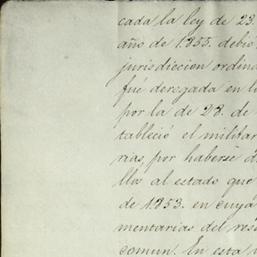 cada la ley de 23.
año de 1855. debio
jurisdiccion ordin
fué derogada en l
por la de 28. de
tableció el militar
rias, por haberse d
lla al estado que
de 1853. en cuya
mentarias del res
comun. En esta